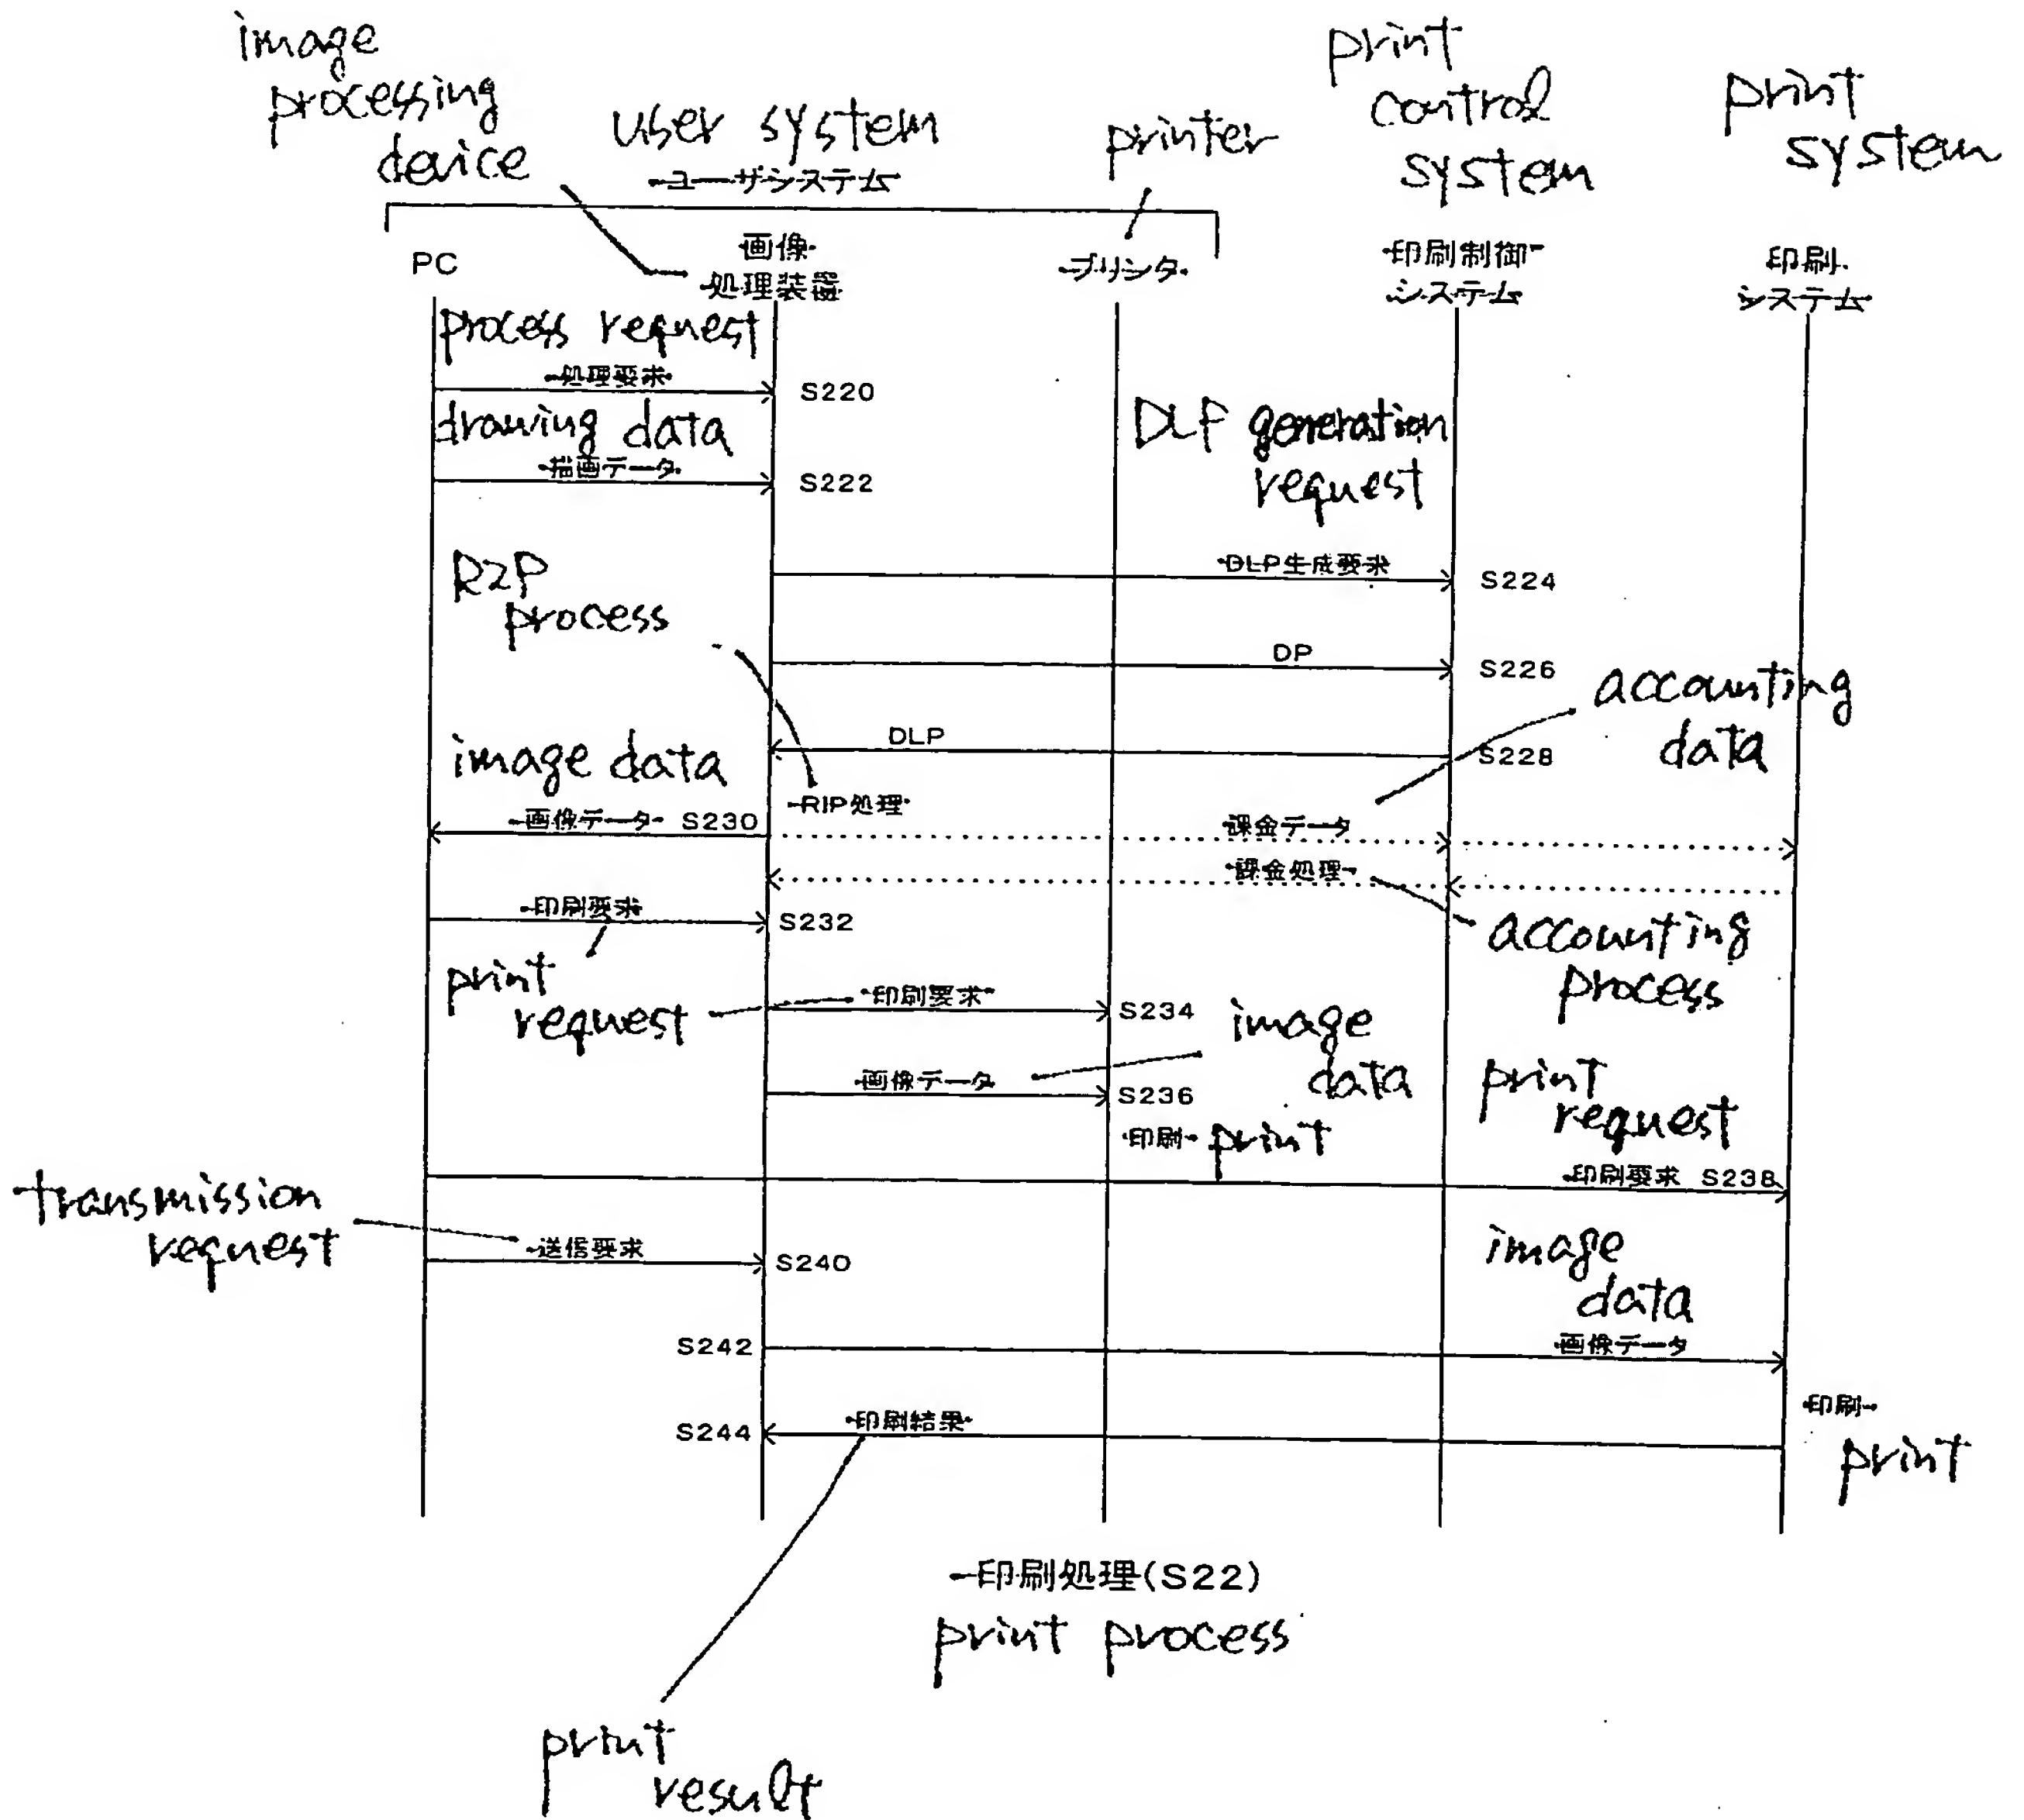 image
processing
device
user system
ユーザシステム
printer
print
control
system
print
system
PC
画像
処理装置
プリンタ
印刷制御
システム
印刷
システム
process request
処理要求
S220
drawing data
描画データ
S222
DLP generation
request
DLP生成要求
S224
R2P
process
DP
S226
accounting
data
DLP
S228
image data
RIP処理
画像データ S230
課金データ
課金処理
印刷要求
S232
accounting
process
print
request
印刷要求
S234
image
data
画像データ
S236
print
request
印刷
print
印刷要求 S238
transmission
request
送信要求
S240
image
data
S242
画像データ
S244
印刷結果
印刷
print
印刷処理(S22)
print process
print
result